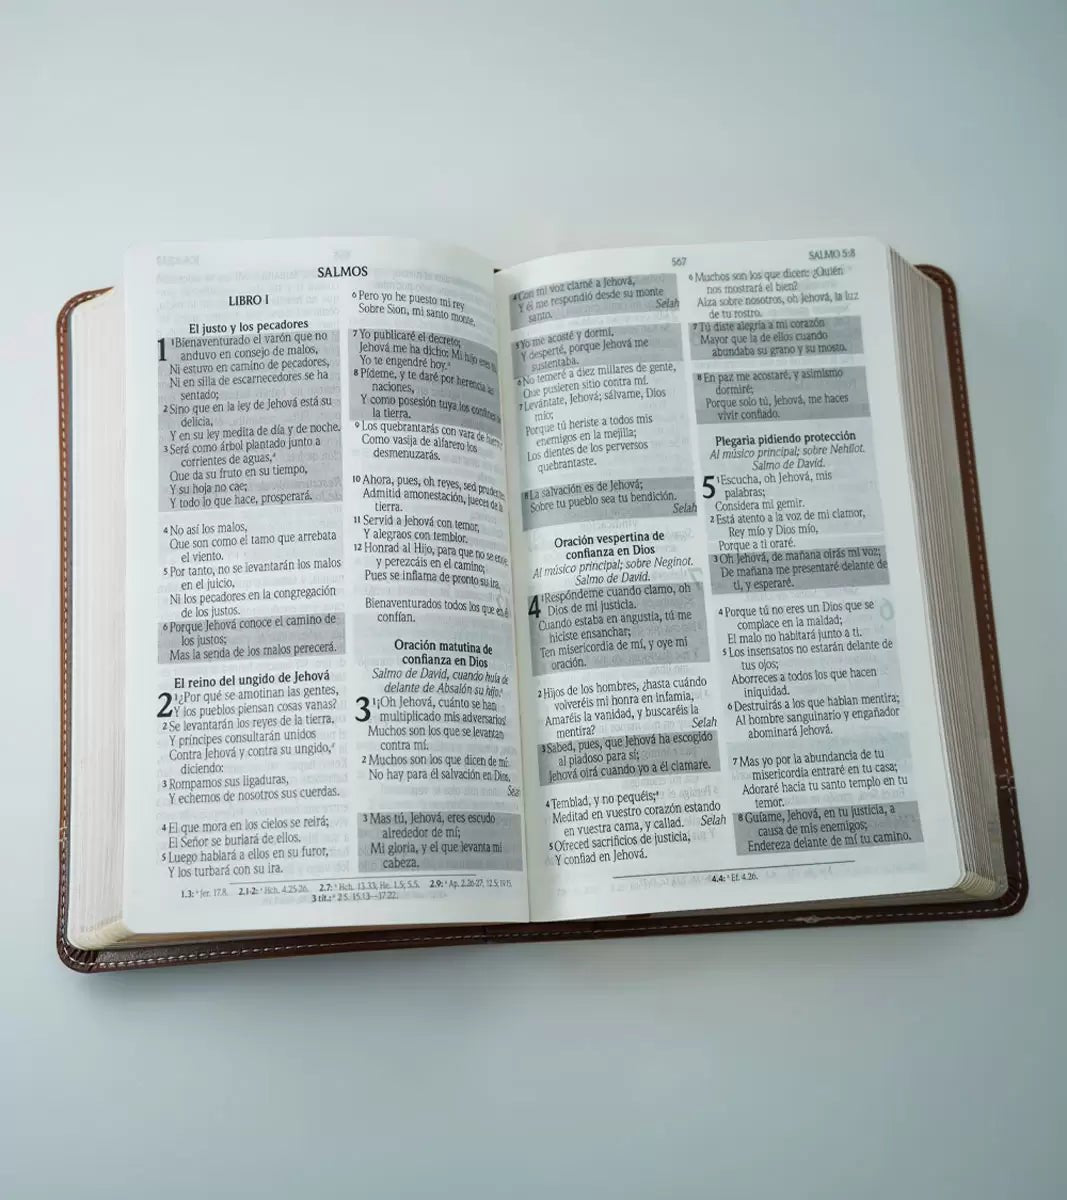 SALMOS
LIBRO I
El justo y los pecadores
1 ¹Bienaventurado el varón que no
anduvo en consejo de malos,
Ni estuvo en camino de pecadores,
Ni en silla de escarnecedores se ha
sentado;
2 Sino que en la ley de Jehová está su
delicia,
Y en su ley medita de día y de noche.
3 Será como árbol plantado junto a
corrientes de aguas,ᵃ
Que da su fruto en su tiempo,
Y su hoja no cae;
Y todo lo que hace, prosperará.
4 No así los malos,
Que son como el tamo que arrebata
el viento.
5 Por tanto, no se levantarán los malos
en el juicio,
Ni los pecadores en la congregación
de los justos.
6 Porque Jehová conoce el camino de
los justos;
Mas la senda de los malos perecerá.
El reino del ungido de Jehová
2 ¹¿Por qué se amotinan las gentes,
Y los pueblos piensan cosas vanas?
2 Se levantarán los reyes de la tierra,
Y príncipes consultarán unidos
Contra Jehová y contra su ungido,ᵃ
diciendo:
3 Rompamos sus ligaduras,
Y echemos de nosotros sus cuerdas.
4 El que mora en los cielos se reirá;
El Señor se burlará de ellos.
5 Luego hablará a ellos en su furor,
Y los turbará con su ira.
6 Pero yo he puesto mi rey
Sobre Sion, mi santo monte.
7 Yo publicaré el decreto;
Jehová me ha dicho: Mi hijo eres tú
Yo te engendré hoy.ᵃ
8 Pídeme, y te daré por herencia las
naciones,
Y como posesión tuya los confines de
la tierra.
9 Los quebrantarás con vara de
Como vasija de alfarero los
desmenuzarás.
10 Ahora, pues, oh reyes, sed prudentes;
Admitid amonestación, jueces de la
tierra.
11 Servid a Jehová con temor,
Y alegraos con temblor.
12 Honrad al Hijo, para que no se enoje,
y perezcáis en el camino;
Pues se inflama de pronto su ira.
Bienaventurados todos los que en él
confían.
Oración matutina de
confianza en Dios
Salmo de David, cuando huía de
delante de Absalón su hijo.ᵃ
3 ¹¡Oh Jehová, cuánto se han
multiplicado mis adversarios!
Muchos son los que se levantan
contra mí.
2 Muchos son los que dicen de mí:
No hay para él salvación en Dios.
Selah
3 Mas tú, Jehová, eres escudo
alrededor de mí;
Mi gloria, y el que levanta mi
cabeza.
1.3: ᵃ Jer. 17.8. 2.1-2: ᵃ Hch. 4.25-26. 2.7: ᵃ Hch. 13.33; He. 1.5; 5.5. 2.9: ᵃ Ap. 2.26-27; 12.5; 19.15.
3 tít.: ᵃ 2 S. 15.13—17.22.
567
SALMO 5:8
4 Con mi voz clamé a Jehová,
Y él me respondió desde su monte
santo. Selah
5 Yo me acosté y dormí,
Y desperté, porque Jehová me
sustentaba.
6 No temeré a diez millares de gente,
Que pusieren sitio contra mí.
7 Levántate, Jehová; sálvame, Dios
mío;
Porque tú heriste a todos mis
enemigos en la mejilla;
Los dientes de los perversos
quebrantaste.
8 La salvación es de Jehová;
Sobre tu pueblo sea tu bendición.
Selah
Oración vespertina de
confianza en Dios
Al músico principal; sobre Neginot.
Salmo de David.
4 ¹Respóndeme cuando clamo, oh
Dios de mi justicia.
Cuando estaba en angustia, tú me
hiciste ensanchar;
Ten misericordia de mí, y oye mi
oración.
2 Hijos de los hombres, ¿hasta cuándo
volveréis mi honra en infamia,
Amaréis la vanidad, y buscaréis la
mentira? Selah
3 Sabed, pues, que Jehová ha escogido
al piadoso para sí;
Jehová oirá cuando yo a él clamare.
4 Temblad, y no pequéis;ᵃ
Meditad en vuestro corazón estando
en vuestra cama, y callad. Selah
5 Ofreced sacrificios de justicia,
Y confiad en Jehová.
6 Muchos son los que dicen: ¿Quién
nos mostrará el bien?
Alza sobre nosotros, oh Jehová, la luz
de tu rostro.
7 Tú diste alegría a mi corazón
Mayor que la de ellos cuando
abundaba su grano y su mosto.
8 En paz me acostaré, y asimismo
dormiré;
Porque solo tú, Jehová, me haces
vivir confiado.
Plegaria pidiendo protección
Al músico principal; sobre Nehilot.
Salmo de David.
5 ¹Escucha, oh Jehová, mis
palabras;
Considera mi gemir.
2 Está atento a la voz de mi clamor,
Rey mío y Dios mío,
Porque a ti oraré.
3 Oh Jehová, de mañana oirás mi voz;
De mañana me presentaré delante de
ti, y esperaré.
4 Porque tú no eres un Dios que se
complace en la maldad;
El malo no habitará junto a ti.
5 Los insensatos no estarán delante de
tus ojos;
Aborreces a todos los que hacen
iniquidad.
6 Destruirás a los que hablan mentira;
Al hombre sanguinario y engañador
abominará Jehová.
7 Mas yo por la abundancia de tu
misericordia entraré en tu casa;
Adoraré hacia tu santo templo en tu
temor.
8 Guíame, Jehová, en tu justicia, a
causa de mis enemigos;
Endereza delante de mí tu camino.
4.4: ᵃ Ef. 4.26.